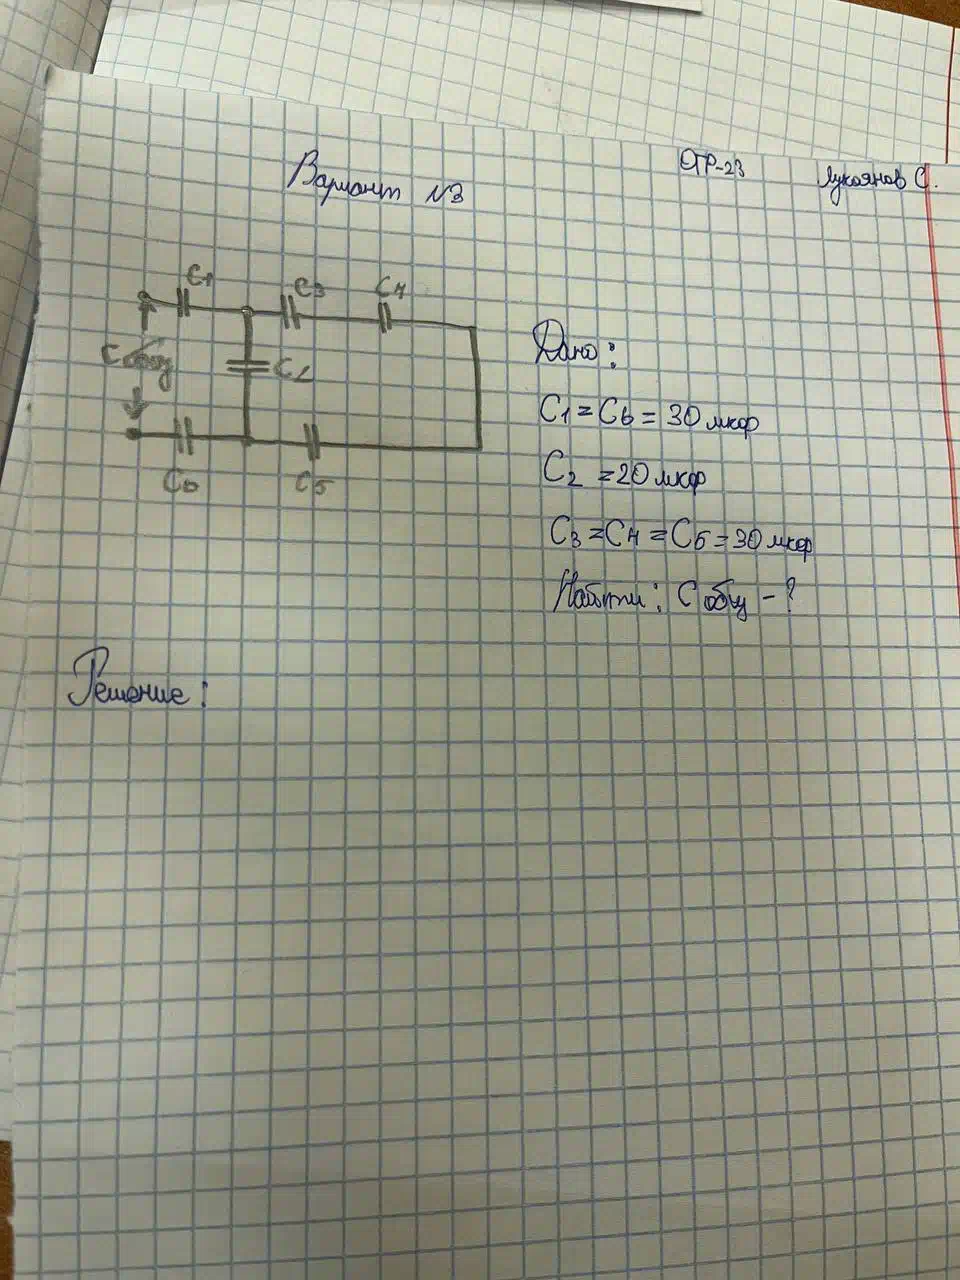 Вариант №3
ОТР-23
Лукоянов С.
C1
C3
C4
C общ
C2
C6
C5
Дано:
C1 = C6 = 30 мкф
C2 = 20 мкф
C3 = C4 = C5 = 30 мкф
Найти: C общ - ?
Решение: